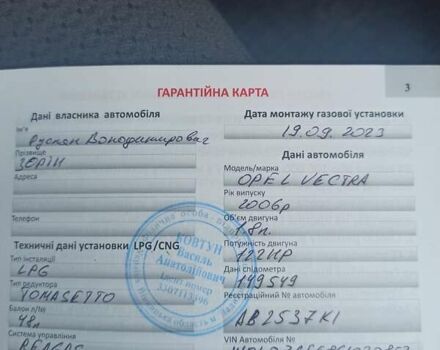 3
ГАРАНТІЙНА КАРТА
Дані власника автомобіля
Ім'я
Руслан Володимирович
Прізвище
ЗОРІН
Адреса
Телефон
Технічні дані установки LPG/CNG
Тип інсталяції
LPG
Тип редуктора
TOMASETTO
Балон л/№
48л
Система управління
Дата монтажу газової установки
19.09.2023
Дані автомобіля
Модель/марка
OPEL VECTRA
Рік випуску
2006р
Об'єм двигуна
1.8л.
Потужність двигуна
122HP
Дані спідометра
149549
Реєстраційний № автомобіля
AB2537KI
VIN Автомобіля №
КОВТУН
Василь
Анатолійович